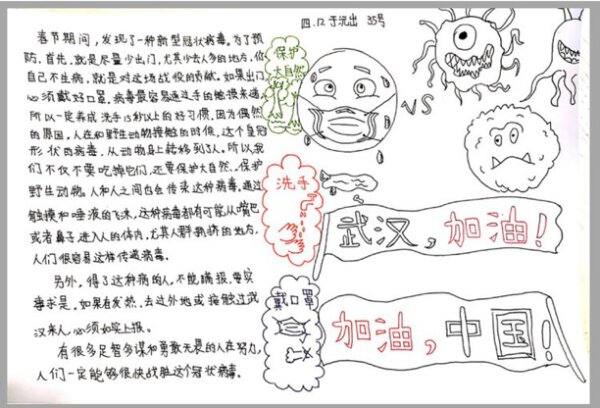 四.12 于洗出 35号
春节期间,发现了一种新型冠状病毒。为了预
防,首先,就是尽量少出门,尤其少去人多的地方,你
自己不生病,就是对这场战役的贡献。如果出门
必须戴好口罩,病毒最容易通过手的触摸来通
所以一定养成洗手15秒以上的好习惯,因为偶然
的原因,人在和野生动物接触的时候,这个皇冠
形状的病毒,从动物身上转移到了人。所以我
们不仅不要吃掉它们,还要保护大自然、保护
野生动物。人和人之间也会传染这种病毒。通过
触摸和唾液的飞沫,这种病毒都有可能从嘴巴
或者鼻子进入人的体内,尤其人群拥挤的地方,
人们很容易这样传递病毒。
另外,得了这种病的人,不能瞒报,要实
事求是。如果有发热,去过外地或接触过武
汉来人,必须如实上报。
有很多足智多谋和勇敢无畏的人在努力,
人们一定能够很快战胜这个冠状病毒。
保护
大自然
VS
洗手
武汉,加油!
戴口罩
加油,中国!